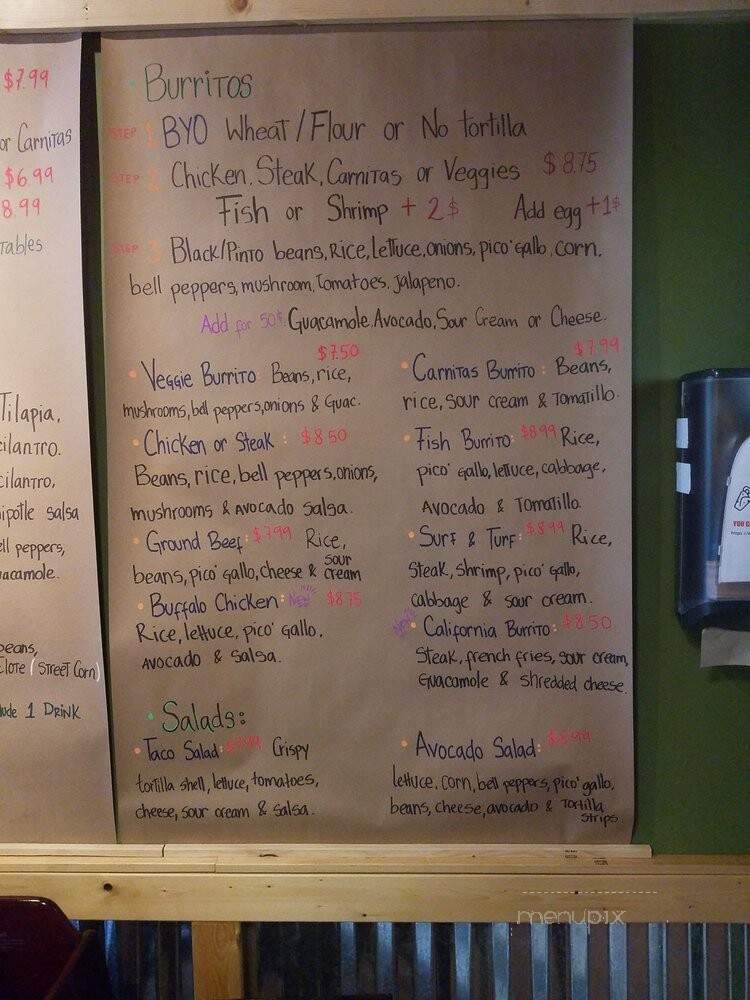 $7.99
or Carnitas
$6.99
8.99
Tables
Tilapia,
cilantro.
cilantro,
ipotle salsa
ell peppers,
uacamole.
beans,
elote (street corn)
lude 1 Drink
Burritos
STEP 1 BYO Wheat/Flour or No tortilla
STEP 2 Chicken, Steak, Carnitas or Veggies $8.75
Fish or Shrimp +2$ Add egg +1$
STEP 3 Black/Pinto beans, Rice, Lettuce, onions, pico' gallo, corn,
bell peppers, mushroom, Tomatoes, Jalapeno.
Add for 50¢ Guacamole, Avocado, Sour Cream or Cheese.
Veggie Burrito Beans, rice, $7.50
mushrooms, bell peppers, onions & Guac.
Chicken or Steak: $8.50
Beans, rice, bell peppers, onions,
mushrooms & avocado salsa.
Ground Beef: $7.99 Rice,
beans, pico' gallo, cheese & sour cream
Buffalo Chicken: NEW $8.75
Rice, lettuce, pico' gallo,
avocado & salsa.
Carnitas Burrito: Beans, $7.99
rice, sour cream & Tomatillo.
Fish Burrito: $8.99 Rice,
pico' gallo, lettuce, cabbage,
Avocado & Tomatillo.
Surf & Turf: $8.99 Rice,
steak, shrimp, pico' gallo,
cabbage & sour cream.
New California Burrito: $8.50
Steak, french fries, sour cream,
Guacamole & shredded cheese.
Salads:
Taco Salad: Crispy
tortilla shell, lettuce, tomatoes,
cheese, sour cream & salsa.
Avocado Salad: $8.99
lettuce, corn, bell peppers, pico' gallo,
beans, cheese, avocado & Tortilla
strips
menupix